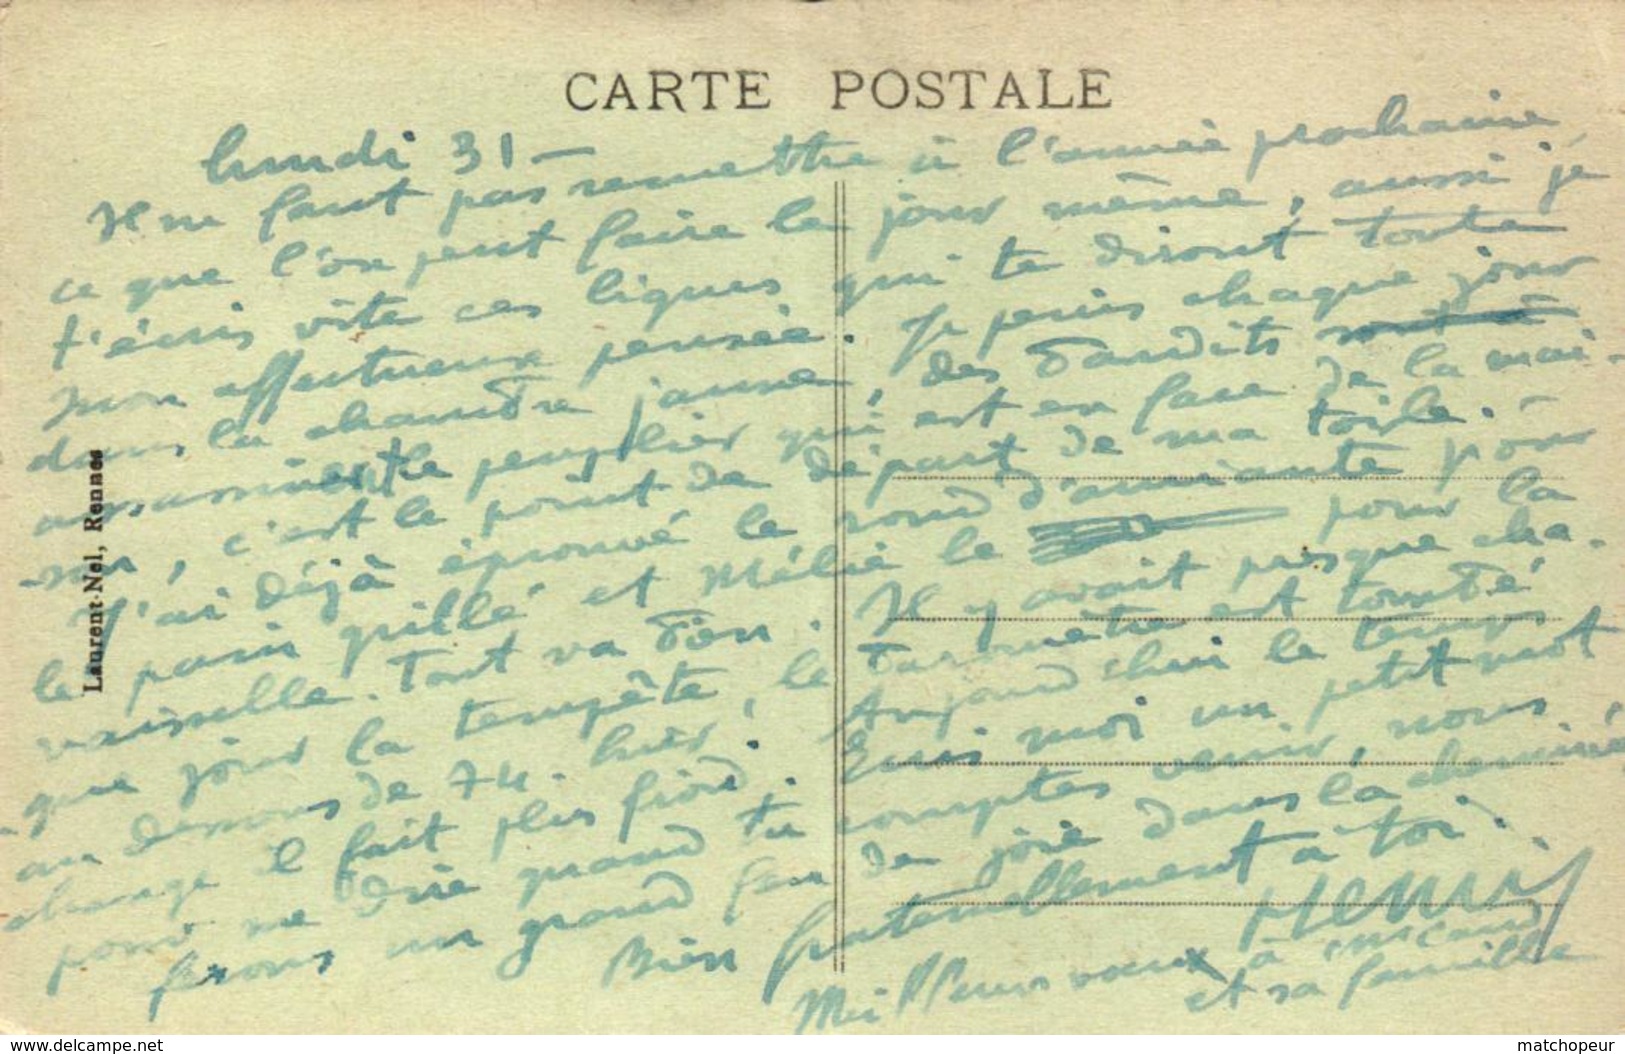 CARTE POSTALE
lundi 31 —
Il ne faut pas remettre à l'année prochaine
ce que l'on peut faire le jour même, aussi je
t'écris vite ces lignes qui te diront toute
mon affectueuse pensée. Je peins chaque jour
dans la chambre jaune, des bandits
assassinent le peuplier qui est en face de la mai-
-son, c'est le point de départ de ma toile.
J'ai déjà éprouvé le rond d'amiante pour
le pain grillé et Mélie le pour la
vaisselle. Tout va bien. Il y avait presque cha-
-que jour la tempête, le baromètre est tombé
au dessous de 74 hier. Aujourd'hui le temps
change il fait plus froid. Ecris moi un petit mot
pour me dire quand tu comptes venir, nous
ferons un grand feu de joie dans la cheminée
Bien fraternellement à toi.
Henri
Meilleurs vœux à
et sa famille
Laurent-Nel, Rennes
www.delcampe.net
matchopeur